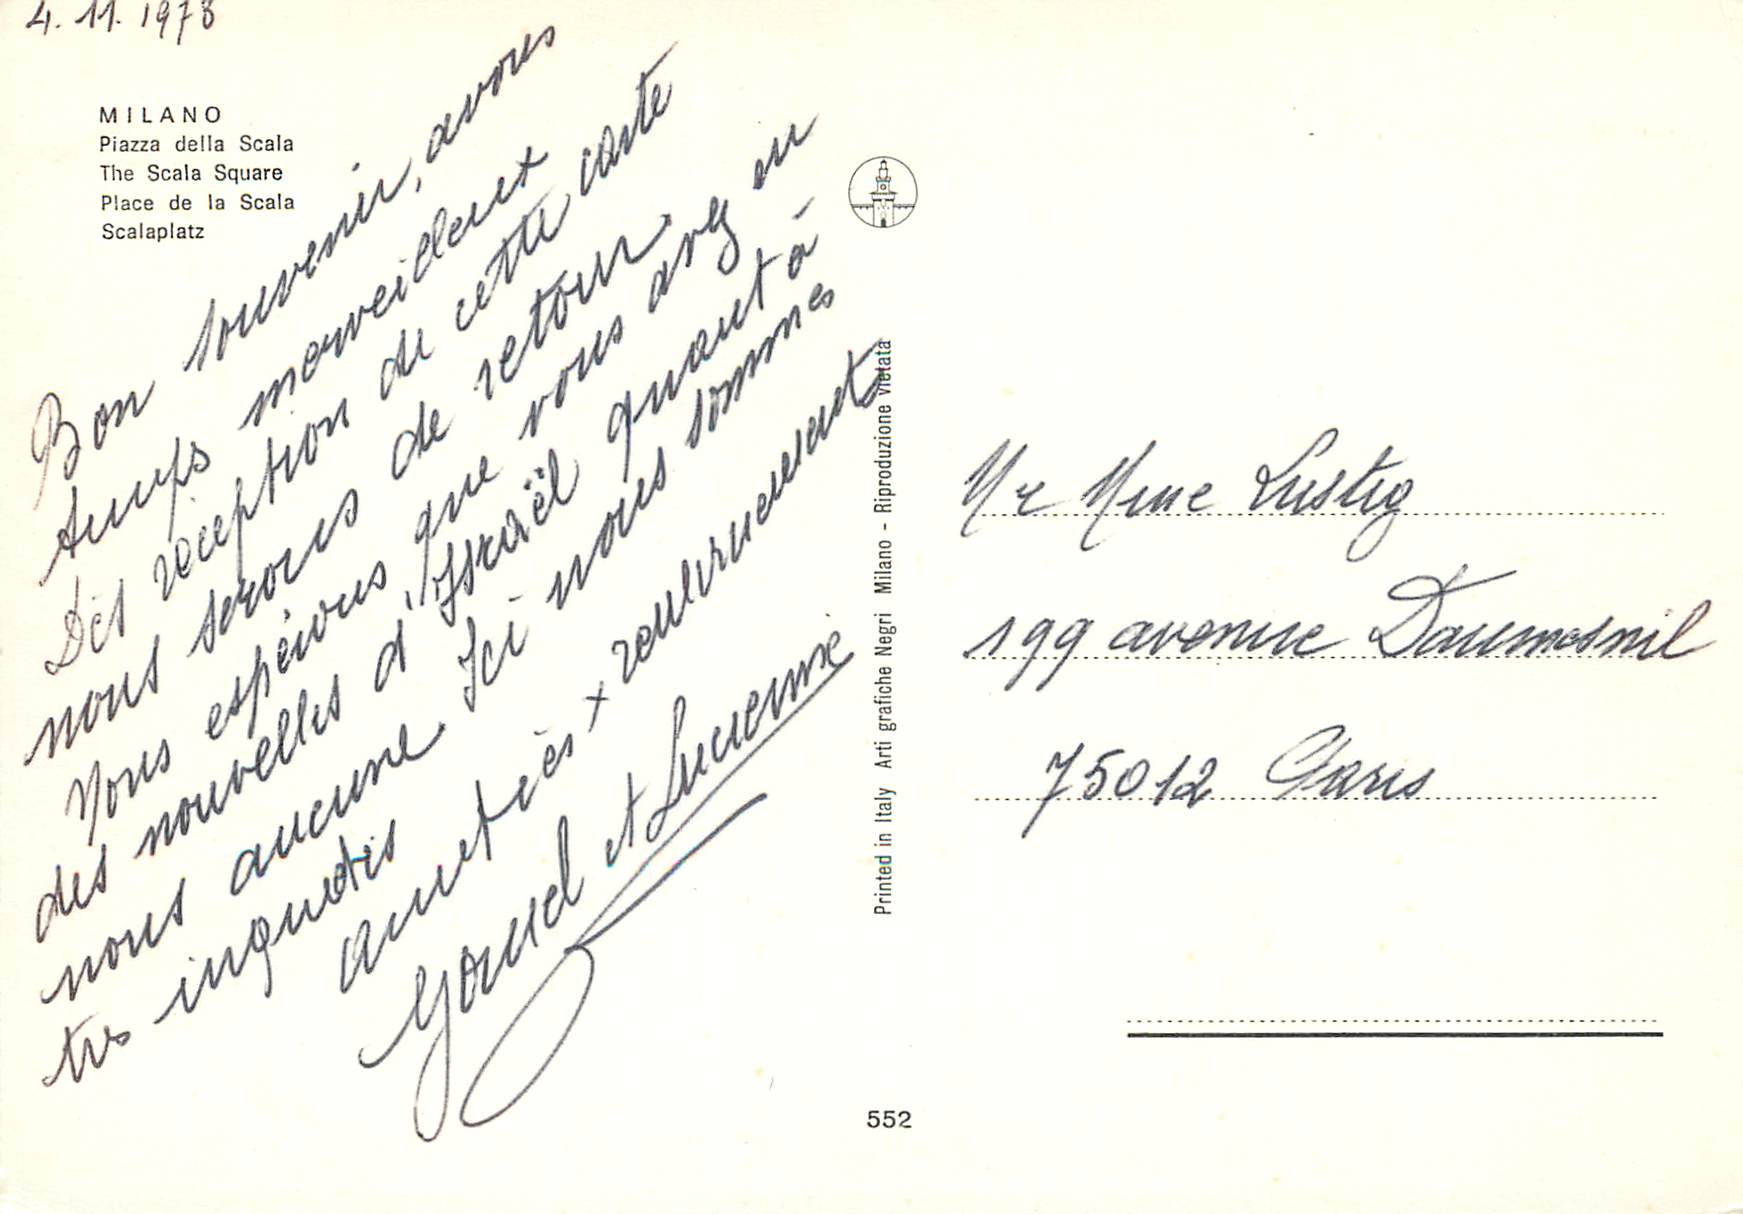 4.11.1978
MILANO
Piazza della Scala
The Scala Square
Place de la Scala
Scalaplatz
Bon souvenir, avons
temps merveilleux
Dès réception de cette carte
nous serons de retour
Nous espérons que vous avez eu
des nouvelles d'Israël quant à
nous aucune. Ici nous sommes
très inquiets
amitiés + remerciements
et Lucienne
Printed in Italy Arti grafiche Negri Milano - Riproduzione vietata
552
Mr Mme Lustig
199 avenue Daumesnil
75012 Paris